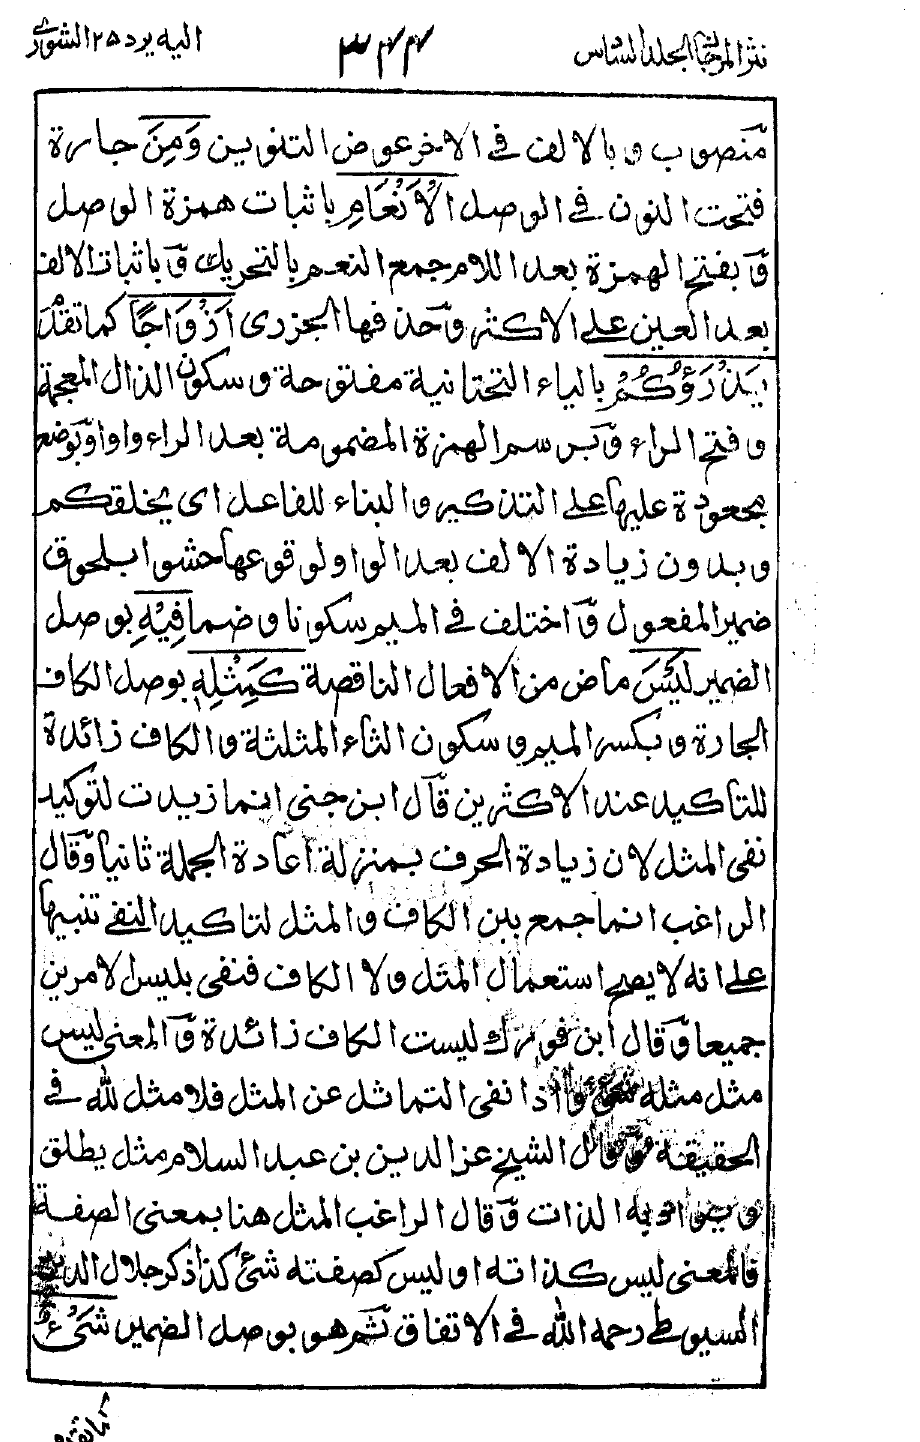 نثر المرجان المجلد السادس ٣٤٤ اليه يرد ٢٥ الشورى
منصوب وبالالف فى الاخر عوض التنوين وَمِنَ جارة
فتحت النون فى الوصل الْأَنْعَامِ باثبات همزة الوصل
وبفتح الهمزة بعد اللام جمع النعم بالتحريك وباثبات الالف
بعد العين على الاكثر وحذفها الجزرى اَزْوَاجًا كما تقدم
يَذْرَؤُكُمْ بالياء التحتانية مفتوحة وسكون الذال المعجمة
وفتح الراء وبرسم الهمزة المضمومة بعد الراء واوا وبوضع
مجعودة عليها على التذكير والبناء للفاعل اى يخلقكم
وبدون زيادة الالف بعد الواو لوقوعها حشوا بلحوق
ضمير المفعول واختلف فى الميم سكونا وضما فِيْهِ بوصل
الضمير لَيْسَ ماض من الافعال الناقصة كَمِثْلِهٖ بوصل الكاف
الجارة وبكسر الميم وسكون الثاء المثلثة والكاف زائدة
للتاكيد عند الاكثرين قال ابن جنى انما زيدت لتوكيد
نفى المثل لان زيادة الحرف بمنزلة اعادة الجملة ثانيا وقال
الراغب انما جمع بين الكاف والمثل لتاكيد النفى تنبيها
على انه لا يصح استعمال المثل ولا الكاف فنفى بليس الامرين
جميعا وقال ابن فورك ليست الكاف زائدة والمعنى ليس
مثل مثله شئ واذا نفى التماثل عن المثل فلا مثل لله فى
الحقيقة وقال الشيخ عز الدين بن عبد السلام مثل يطلق
ويراد به الذات وقال الراغب المثل هنا بمعنى الصفة
فالمعنى ليس كذاته او ليس كصفته شئ كذا ذكر جلال الدين
السيوطى رحمه الله فى الاتفاق ثم هو بوصل الضمير شَىْءٌ